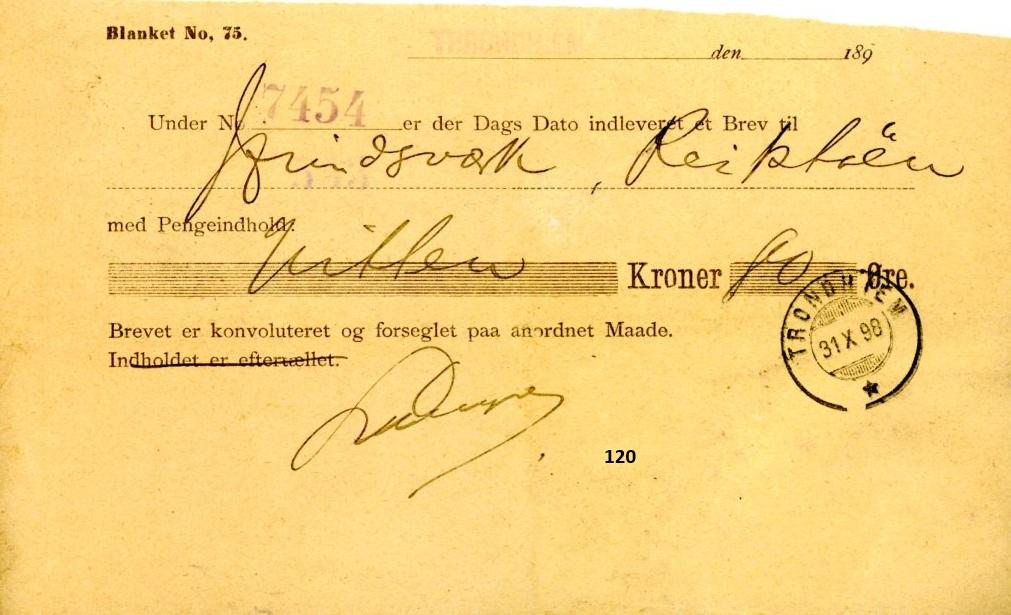 Blanket No, 75.
TRONDHJEM
den 189
Under No 7454 er der Dags Dato indleveret et Brev til
med Pengeindhold:
Kroner 90 Øre.
Brevet er konvoluteret og forseglet paa anordnet Maade.
Indholdet er eftertællet.
TRONDHJEM
31 X 98
120